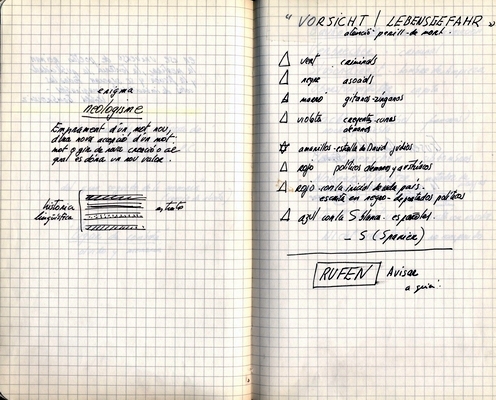 enigma
neologisme
Emprament d'un mot nou,
d'una nova accepció d'un mot.
mot o gir de nova creació o al
qual es dóna un nou valor.
història
lingüística
estrats
"VORSICHT / LEBENSGEFAHR"
atenció perill de mort.
verd criminals
negre asocials
marró gitanos-zíngaros
violeta
alemanes
amarillos-estrella de David judíos
rojo políticos alemanes y austríacos
rojo con la inicial de cada país.
escrita en negro-deportados políticos
azul con la S blanca. españoles.
- S (Spanier)
RUFEN Avisar
a quien.